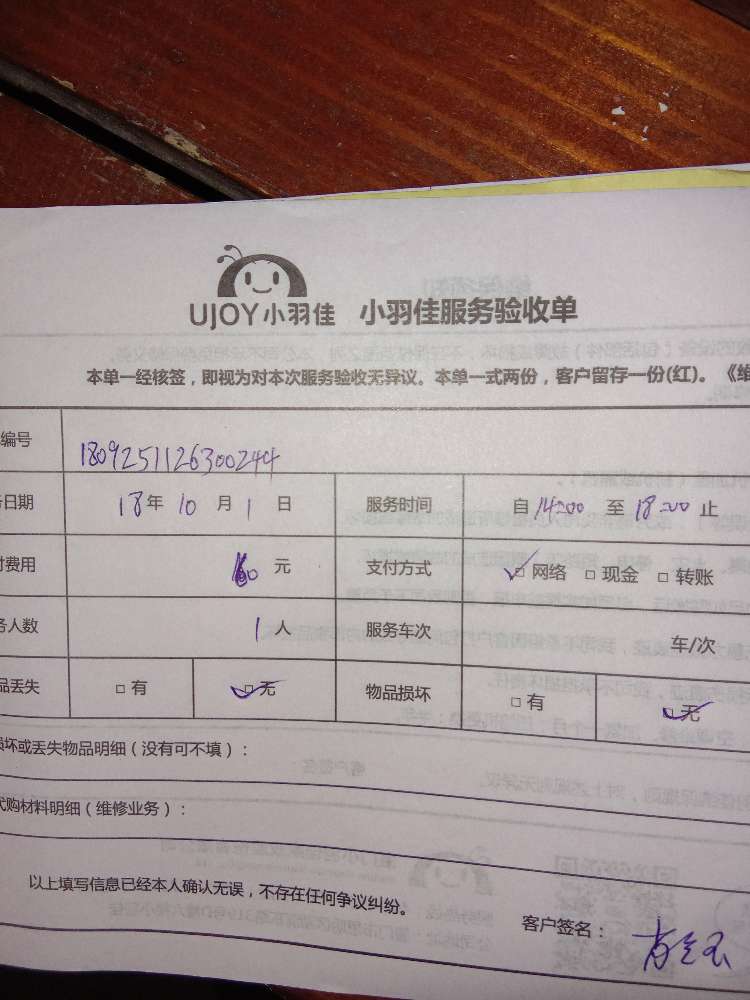 UJOY小羽佳 小羽佳服务验收单
本单一经核签，即视为对本次服务验收无异议。本单一式两份，客户留存一份(红)。《维
编号 1809251126300244
日期 18年 10月 1日 服务时间 自 14:00 至 18:00 止
费用 元 支付方式 ✓□ 网络 □ 现金 □ 转账
人数 1人 服务车次 车/次
品丢失 □ 有 ✓□ 无 物品损坏 □ 有 ✓□ 无
损坏或丢失物品明细（没有可不填）：
代购材料明细（维修业务）：
以上填写信息已经本人确认无误，不存在任何争议纠纷。
客户签名：